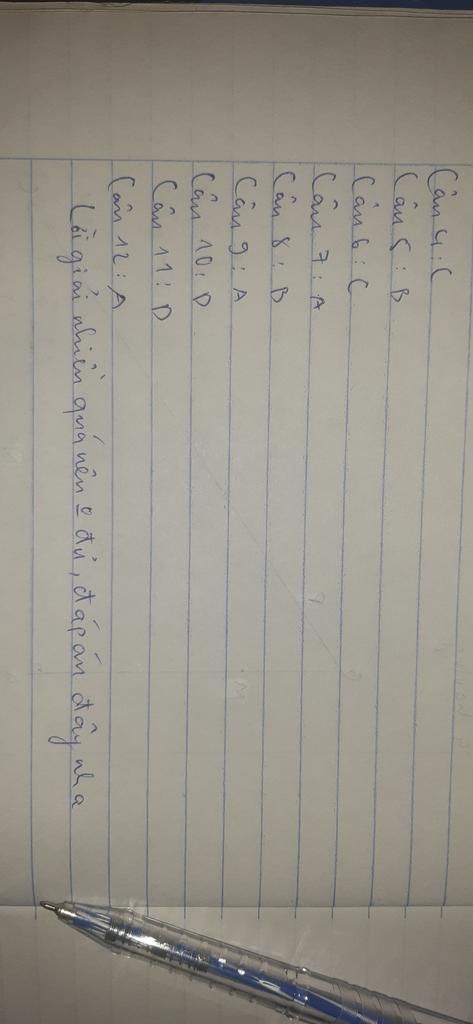 Câu 4: C
Câu 5: B
Câu 6: C
Câu 7: A
Câu 8: B
Câu 9: A
Câu 10: D
Câu 11: D
Câu 12: A
Lời giải nhiều quá nên o đủ, đáp án đây nha